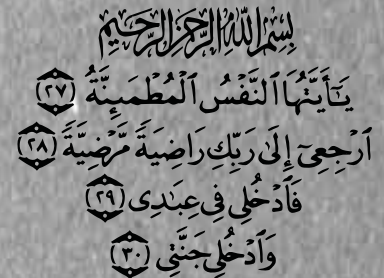 بِسْمِ اللَّهِ الرَّحْمَٰنِ الرَّحِيمِ
يَـٰٓأَيَّتُهَا ٱلنَّفْسُ ٱلْمُطْمَئِنَّةُ ﴿٢٧﴾
ٱرْجِعِىٓ إِلَىٰ رَبِّكِ رَاضِيَةً مَّرْضِيَّةً ﴿٢٨﴾
فَٱدْخُلِى فِى عِبَـٰدِى ﴿٢٩﴾
وَٱدْخُلِى جَنَّتِى ﴿٣٠﴾